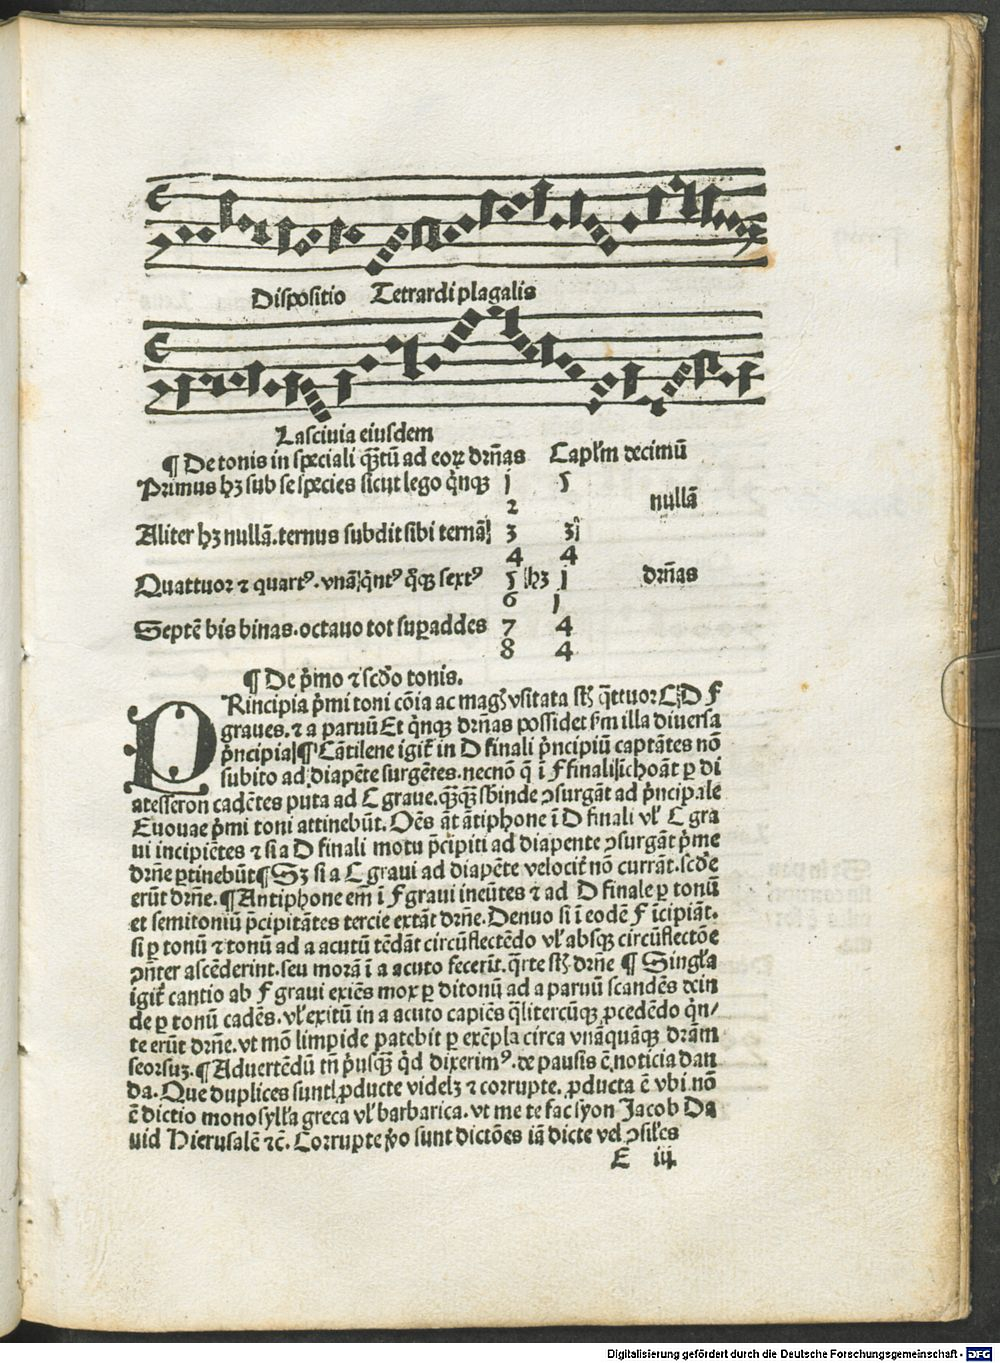 Dispositio Tetrardi plagalis
Lasciuia eiusdem
¶ De tonis in speciali q̃tũ ad eoꝝ drñas Capl'm decimũ
Primus hꝫ sub se species sicut lego q̇nqꝫ 1 5
2 nullã
Aliter hꝫ nullã. ternus subdit sibi ternã 3 3
4 4
Quattuor ⁊ quartꝰ. vnã q̇ntꝰ q̇qꝫ sextꝰ 5 hꝫ 1 drñas
6 1
Septẽ bis binas. octauo tot suꝑaddes 7 4
8 4
¶ De p̃mo ⁊ scd̃o tonis.
PRincipia p̃mi toni cõia ac magꝭ vsitata st̃ q̃ttuor C D F
graues. ⁊ a paruũ Et q̇nqꝫ drñas possidet s'm illa diuersa
p̃ncipia ¶ Cãtilene igit̃ in D finali p̃ncipiũ captãtes nõ
subito ad diapẽte surgẽtes. necnõ q̃ ĩ F finali ĩchoãt ꝑ di
atesseron cadẽtes puta ad C graue. q̃qꝫ sb̃inde ꝯsurgãt ad p̃ncipale
Euouae p̃mi toni attinebũt. Oẽs ãt ãtiphone ĩ D finali vl' C gra
ui incipiẽtes ⁊ si a D finali motu p̃cipiti ad diapente ꝯsurgãt p̃me
drñe ꝑtinebũt ¶ Sꝫ si a C graui ad diapẽte velocit̃ nõ currãt. scd̃e
erũt drñe. ¶ Antiphone em̃ ĩ F graui ineũtes ⁊ ad D finale ꝑ tonũ
et semitoniũ p̃cipitãtes tercie extãt drñe. Denuo si ĩ eodẽ F ĩcipiãt.
si ꝑ tonũ ⁊ tonũ ad a acutũ tẽdãt circũflectẽdo vl' absqꝫ circũflectõe
ꝯñter ascẽderint. seu morã ĩ a acuto fecerũt. q̃rte st̃ drñe ¶ Singl'a
igit̃ cantio ab F graui exiẽs mox ꝑ ditonũ ad a paruũ scandẽs dein
de ꝑ tonũ cadẽs. vl' exitũ in a acuto capiẽs q̃litercũqꝫ ꝓcedẽdo q̇n/
te erũt drñe. vt mõ limpide ꝑatebit ꝑ exẽpla circa vnãquãqꝫ drãm
seorsuꝫ. ¶ Aduertẽdũ tñ p̃usqꝫ q̇d dixerimꝰ. de pausis ẽ noticia dan
da. Que duplices sunt ꝓducte videlꝫ ⁊ corrupte. ꝓducta ẽ vbi nõ
ẽ dictio monosyll'a greca vl' barbarica. vt me te fac syon Jacob Da
uid Hierusalẽ ⁊c̃. Corrupte v̊o sunt dictões iã dicte vel ꝯsil'es
E iij
Digitalisierung gefördert durch die Deutsche Forschungsgemeinschaft - DFG